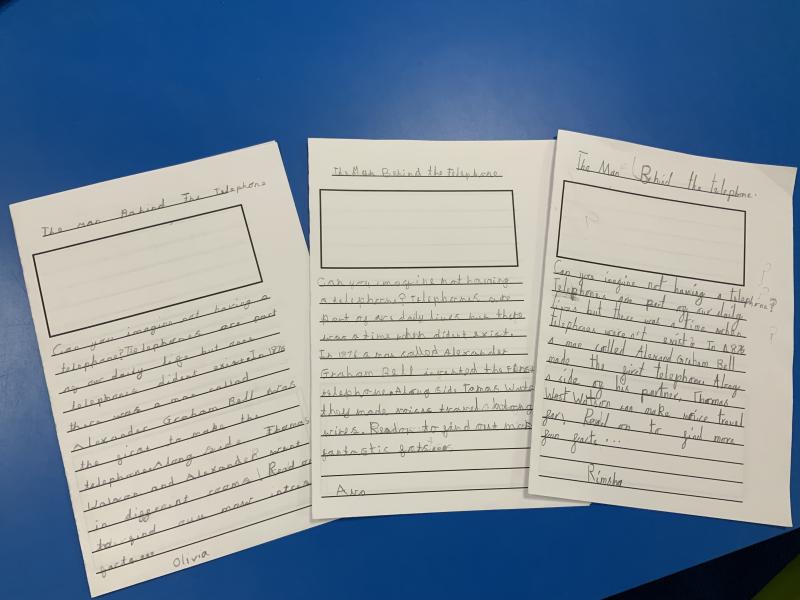 The man Behind The Telephone
Can you imagine not having a
telephone? Telephones are part
of our daily life but once
telephones dident exist. In 1876
there was a man called
Alexander Graham Bell was
the first to make the
telephone. Along side Thomas
Watson and Alexander went
in different rooms! Read on
to find out more
facts...
Olivia
The Man Behind the telephone
Can you imagine not having
a telephone? Telephones are
part of ars daily lives but there
was a time when didnt exist.
In 1876 a man called Alexander
Graham Bell invented the first
telephone. Along side Tomas Wats
they made voices travel along
wires. Read on to find out more
fantastic facts...
The Man Behind the telephone.
Can you imagine not having a telephone?
Telephones are part of our daily
lives but there was a time when
telephones weren't exist's. In 1876
a man called Alexand Graham Bell
made the first telephone. Along
a side of his partner, Thomas
Wast Watson can make voice travel
far! Read on to find more
fun facts...
Rimsha